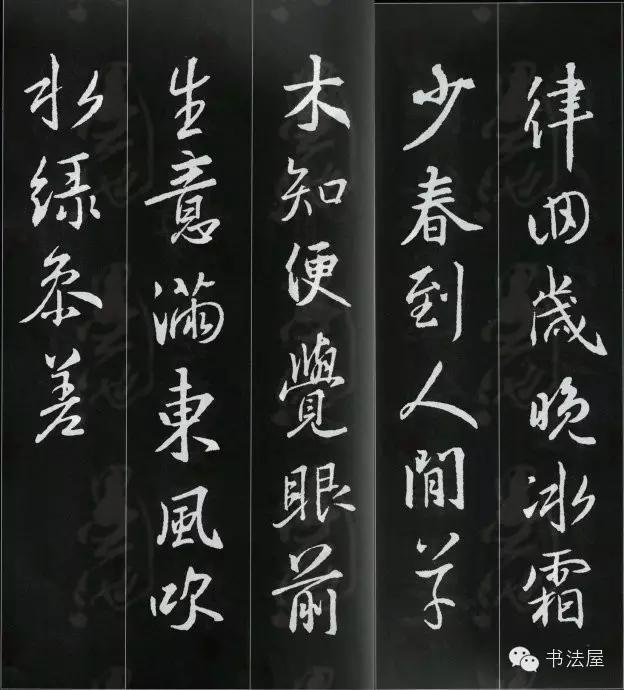 律回歲晚冰霜
少春到人間草
木知便覺眼前
生意滿東風吹
水綠參差
书法屋